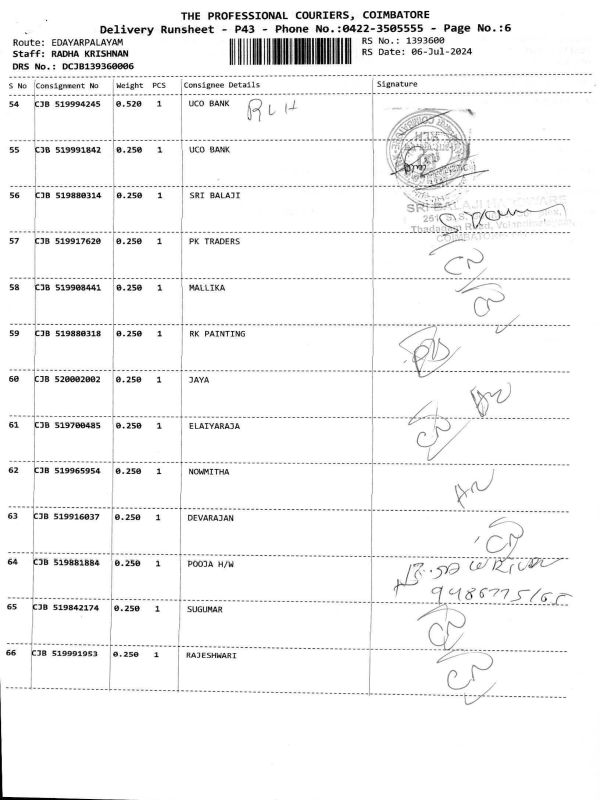 THE PROFESSIONAL COURIERS, COIMBATORE
Delivery Runsheet - P43 - Phone No.:0422-3505555 - Page No.:6
Route: EDAYARPALAYAM
RS No.: 1393600
Staff: RADHA KRISHNAN
RS Date: 06-Jul-2024
DRS No.: DCJB139360006
S No Consignment No Weight PCS Consignee Details Signature
54 CJB 519994245 0.520 1 UCO BANK RLH
55 CJB 519991842 0.250 1 UCO BANK
56 CJB 519880314 0.250 1 SRI BALAJI
SRI BALAJI HARDWARE
Thadagam Road,
COIMBATORE
57 CJB 519917620 0.250 1 PK TRADERS CN
58 CJB 519908441 0.250 1 MALLIKA CN
59 CJB 519880318 0.250 1 RK PAINTING
60 CJB 520002002 0.250 1 JAYA
61 CJB 519700485 0.250 1 ELAIYARAJA CN
62 CJB 519965954 0.250 1 NOWMITHA AN
63 CJB 519916037 0.250 1 DEVARAJAN CN
64 CJB 519881884 0.250 1 POOJA H/W
9486775165
65 CJB 519842174 0.250 1 SUGUMAR CN
66 CJB 519991953 0.250 1 RAJESHWARI CN